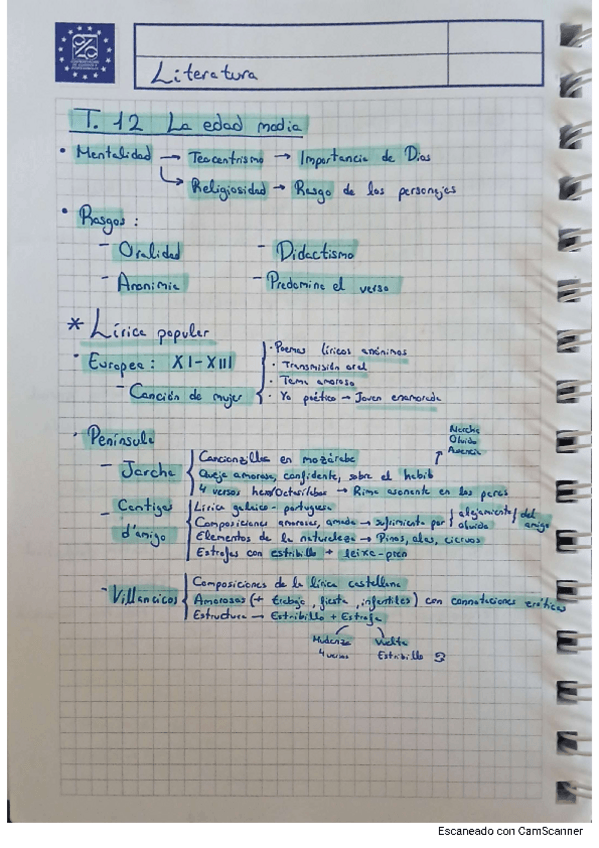 Literatura
T. 12 La edad media
• Mentalidad → Teocentrismo → Importancia de Dios
↳ Religiosidad → Rasgo de los personajes
• Rasgos :
- Oralidad - Didactismo
- Anonimia - Predomina el verso
* Lírica popular
• Europea : XI-XIII
· Poemas líricos anónimos
· Transmisión oral
· Tema amoroso
- Canción de mujer
· Yo poético → Joven enamorada
• Península
Marcha
Olvido
Ausencia
- Jarcha
Cancioncilla en mozárabe
Queja amorosa, confidente, sobre el habib
4 versos hexa/Octosílabos → Rima asonante en los pares
- Cantiga d'amigo
Lírica galaico-portuguesa
Composiciones amorosas, amada → sufrimiento por { alejamiento / olvido } del amigo
Elementos de la naturaleza → Pinos, olas, ciervos
Estrofas con estribillo + leixa-pren
- Villancicos
Composiciones de la lírica castellana
Amorosos (+ trabajo, fiesta, infantiles) con connotaciones eróticas
Estructura → Estribillo + Estrofa
Mudanza Vuelta
4 versos Estribillo
Escaneado con CamScanner